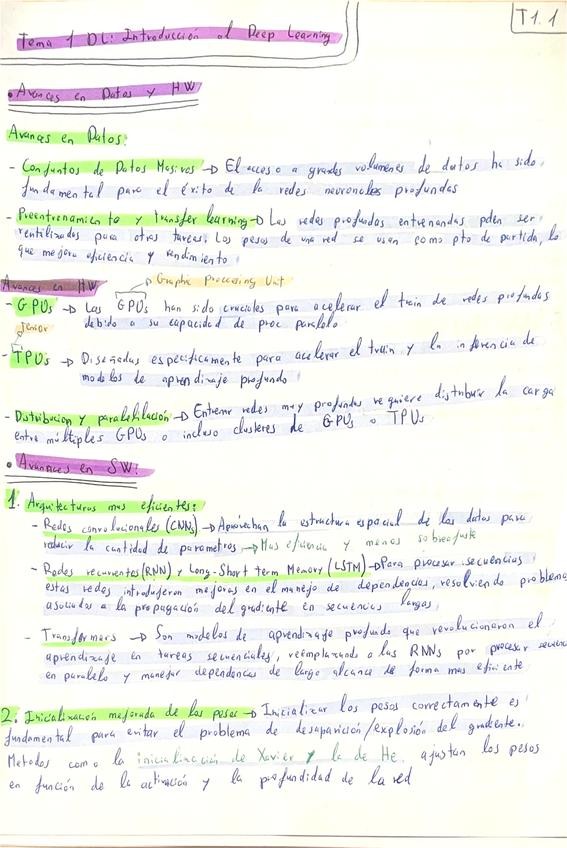 T1.1
Tema 1 DL: Introducción al Deep Learning
• Avances en Datos y HW
Avances en Datos:
- Conjuntos de Datos Masivos → El acceso a grandes volúmenes de datos ha sido
fundamental para el éxito de la redes neuronales profundas
- Preentrenamiento y transfer learning → Las redes profundas entrenandas pden ser
reutilizados para otras tareas. Los pesos de una red se usan como pto de partida, lo
que mejora eficiencia y rendimiento
Avances en HW
Graphic Processing Unit
- GPUs → Las GPUs han sido cruciales para acelerar el train de redes profundas
debido a su capacidad de proc paralelo
Tensor
- TPUs → Diseñadas especificamente para acelerar el train y la inferencia de
modelos de aprendizaje profundo
- Distribucion y paralelilación → Entrenar redes muy profundas requiere distribuir la carga
entre múltiples GPUs o incluso clusteres de GPUs o TPUs
• Avances en SW:
1. Arquitecturas mas eficientes:
- Redes convolucionales (CNNs) → Aprovechan la estructura espacial de los datos para
reducir la cantidad de parametros → Mas eficiencia y menos sobreajuste
- Redes recurrentes (RNN) y Long-Short term Memory (LSTM) → Para procesar secuencias
estas redes introdujeron mejoras en el manejo de dependencias, resolviendo problema
asociados a la propagación del gradiente en secuencias largas
- Transformers → Son modelos de aprendizaje profundo que revolucionaron el
aprendizaje en tareas secuenciales, reemplazando a las RNNs por procesar secuenc
en paralelo y manejar dependencias de largo alcance de forma mas eficiente
2. Inicialización mejorada de los pesos → Inicializar los pesos correctamente es
fundamental para evitar el problema de desaparición/explosión del gradiente.
Metodos como la inicialización de Xavier y la de He, ajustan los pesos
en función de la activación y la profundidad de la red